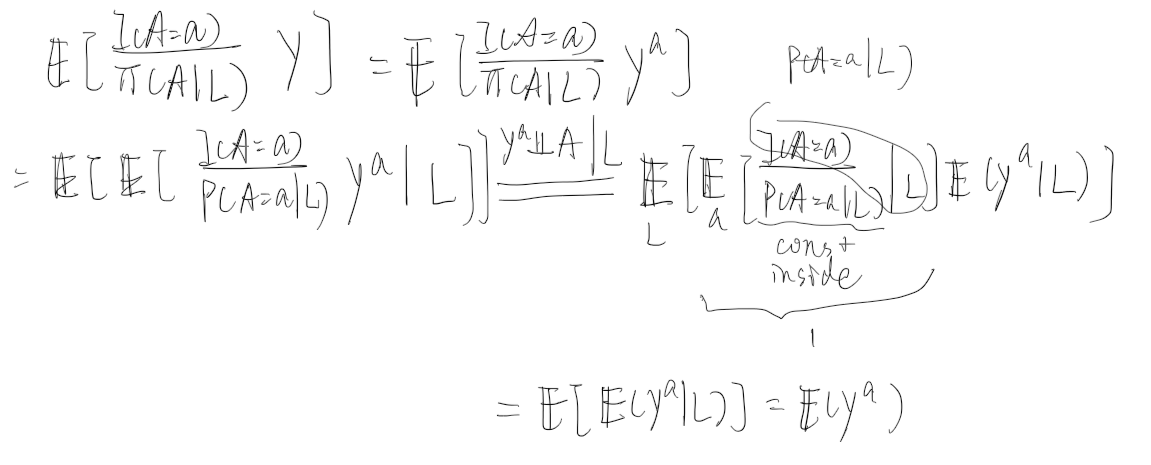 𝔼[ I(A=a)/π(A|L) Y ] = 𝔼[ I(A=a)/π(A|L) Y^a ] P(A=a|L)
= 𝔼[𝔼[ I(A=a)/P(A=a|L) Y^a | L]] =(Y^a⫫A|L)= 𝔼_L[𝔼_a[ I(A=a)/P(A=a|L) | L] 𝔼(Y^a|L)]
const
inside
1
= 𝔼[𝔼(Y^a|L)] = 𝔼(Y^a)